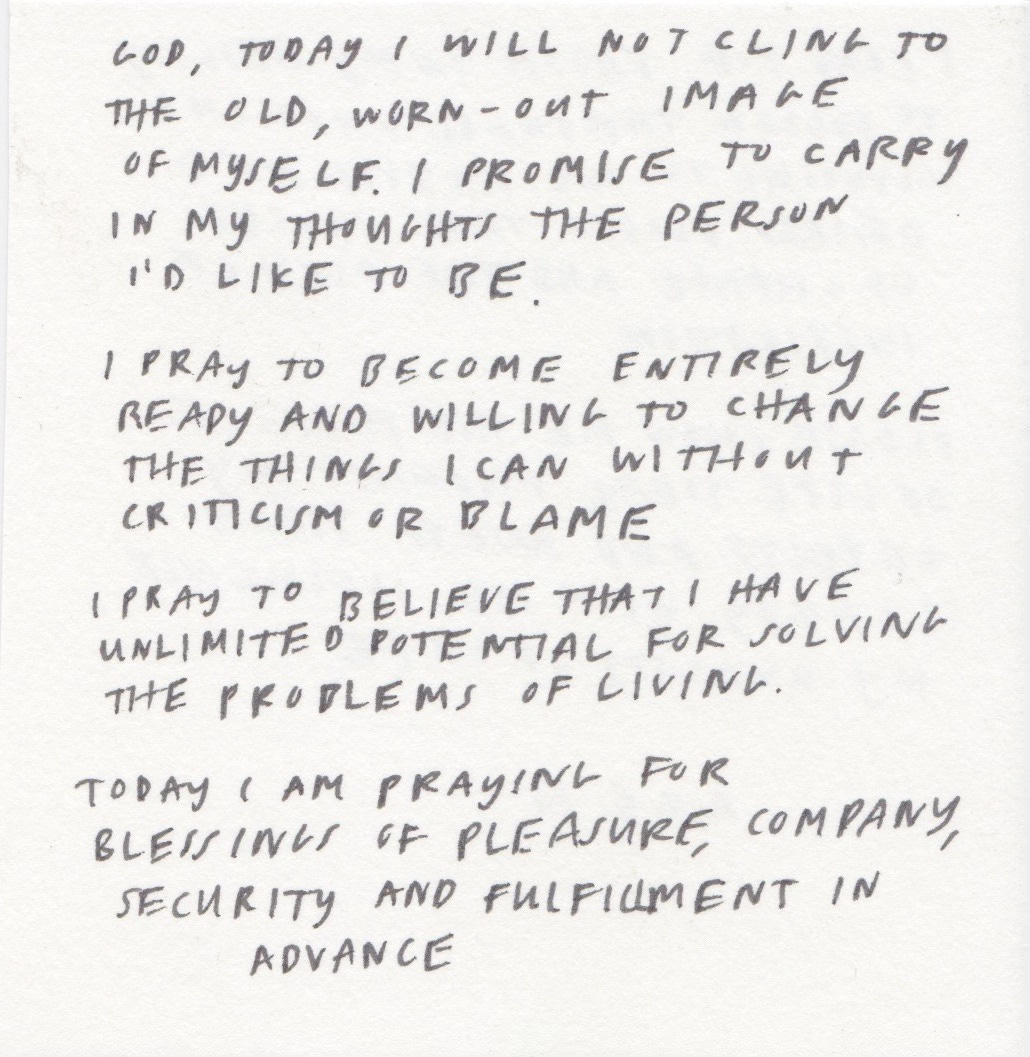 GOD, TODAY I WILL NOT CLING TO
THE OLD, WORN-OUT IMAGE
OF MYSELF. I PROMISE TO CARRY
IN MY THOUGHTS THE PERSON
I'D LIKE TO BE.
I PRAY TO BECOME ENTIRELY
READY AND WILLING TO CHANGE
THE THINGS I CAN WITHOUT
CRITICISM OR BLAME
I PRAY TO BELIEVE THAT I HAVE
UNLIMITED POTENTIAL FOR SOLVING
THE PROBLEMS OF LIVING.
TODAY I AM PRAYING FOR
BLESSINGS OF PLEASURE, COMPANY,
SECURITY AND FULFILLMENT IN
ADVANCE